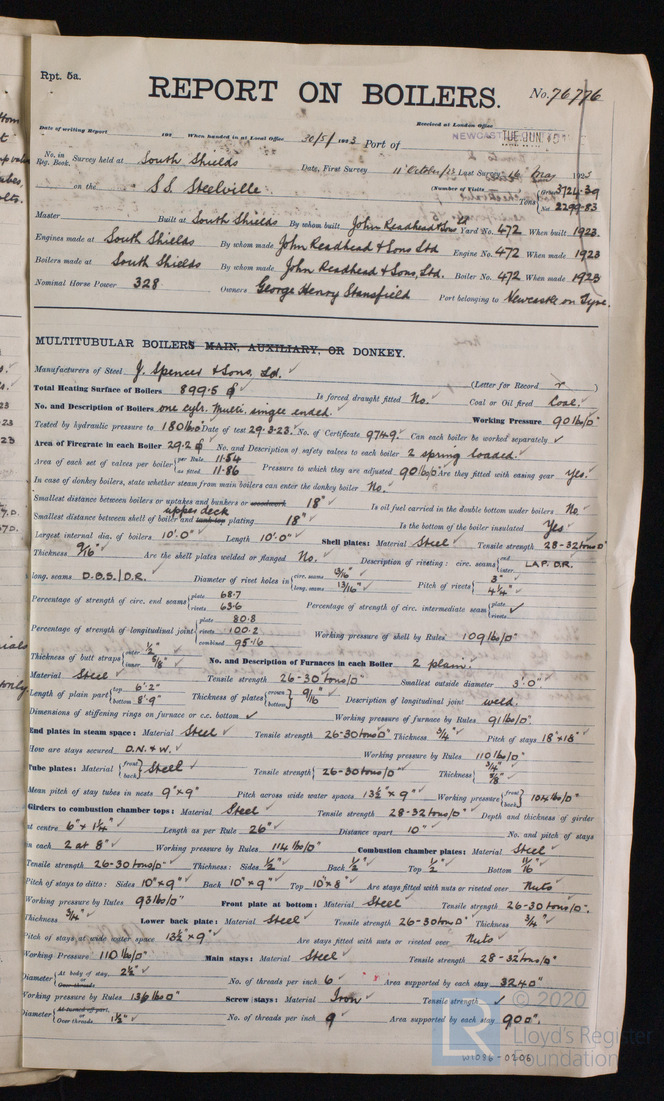 Rpt. 5a.
REPORT ON BOILERS.
No. 76776
Received at London Office
Date of writing Report 192 When handed in at Local Office 30/5/1923 Port of NEWCAS TUE. JUN.
No. in Survey held at South Shields Date, First Survey 11 October/ Last Survey May 1923
Reg. Book.
(Number of Visits
on the S.S. Steelville Tons Gross 3724.39
Net 2299.83
Master Built at South Shields By whom built John Readhead & Sons Ld Yard No. 472 When built 1923
Engines made at South Shields By whom made John Readhead & Sons Ltd Engine No. 472 When made 1923
Boilers made at South Shields By whom made John Readhead & Sons, Ltd. Boiler No. 472 When made 1923
Nominal Horse Power 328 Owners George Henry Stansfield Port belonging to Newcastle on Tyne.
MULTITUBULAR BOILERS MAIN, AUXILIARY, OR DONKEY.
Manufacturers of Steel J. Spencer & Sons, Ld. (Letter for Record r )
Total Heating Surface of Boilers 899.5 ф Is forced draught fitted No. Coal or Oil fired Coal.
No. and Description of Boilers one cylr. Multi. single ended. Working Pressure 90 lbs/□"
Tested by hydraulic pressure to 180 lbs Date of test 29.3.23. No. of Certificate 9749. Can each boiler be worked separately ✓
Area of Firegrate in each Boiler 29.2 ф No. and Description of safety valves to each boiler 2 spring loaded.
Area of each set of valves per boiler per Rule 11.54
as fitted 11.86 Pressure to which they are adjusted 90 lbs/□" Are they fitted with easing gear Yes.
In case of donkey boilers, state whether steam from main boilers can enter the donkey boiler No.
Smallest distance between boilers or uptakes and bunkers or woodwork 18" Is oil fuel carried in the double bottom under boilers No
Smallest distance between shell of boiler and tank top plating upper deck 18" Is the bottom of the boiler insulated Yes
Largest internal dia. of boilers 10'.0" Length 10'.0" Shell plates: Material Steel Tensile strength 28-32 tons □"
Thickness 9/16" Are the shell plates welded or flanged No. Description of riveting: circ. seams end LAP. D.R.
inter.
long. seams D.B.S./D.R. Diameter of rivet holes in circ. seams 13/16"
long. seams 13/16" Pitch of rivets 3"
4¼"
Percentage of strength of circ. end seams plate 68.7
rivets 63.6 Percentage of strength of circ. intermediate seam plate
rivets ✓
Percentage of strength of longitudinal joint plate 80.8
rivets 100.2
combined 95.16 Working pressure of shell by Rules 109 lbs/□"
Thickness of butt straps outer ½"
inner 5/8" No. and Description of Furnaces in each Boiler 2 plain.
Material Steel Tensile strength 26-30 tons/□" Smallest outside diameter 3'.0"
Length of plain part top 6'-2"
bottom 8'-9" Thickness of plates crown
bottom 9/16" Description of longitudinal joint weld.
Dimensions of stiffening rings on furnace or c.c. bottom ✓ Working pressure of furnace by Rules 91 lbs/□".
End plates in steam space: Material Steel Tensile strength 26-30 tons □" Thickness ¾" Pitch of stays 18"×18"
How are stays secured D.N.&W. Working pressure by Rules 110 lbs/□"
Tube plates: Material front
back Steel Tensile strength 26-30 tons/□" Thickness ¾"
5/8"
Mean pitch of stay tubes in nests 9"×9" Pitch across wide water spaces 13½"×9" Working pressure front
back 104 lbs/□"
Girders to combustion chamber tops: Material Steel Tensile strength 28-32 tons/□" Depth and thickness of girder
at centre 6"×1¼" Length as per Rule 26" Distance apart 10" No. and pitch of stays
in each 2 at 8" Working pressure by Rules 114 lbs/□" Combustion chamber plates: Material Steel
Tensile strength 26-30 tons/□" Thickness: Sides ½" Back ½" Top ½" Bottom 11/16"
Pitch of stays to ditto: Sides 10"×9" Back 10"×9" Top 10"×8" Are stays fitted with nuts or riveted over Nuts
Working pressure by Rules 93 lbs/□" Front plate at bottom: Material Steel Tensile strength 26-30 tons/□".
Thickness ¾" Lower back plate: Material Steel Tensile strength 26-30 tons □" Thickness ¾"
Pitch of stays at wide water space 13½"×9" Are stays fitted with nuts or riveted over Nuts
Working Pressure 110 lbs/□" Main stays: Material Steel Tensile strength 28-32 tons/□"
Diameter At body of stay, 2½"
or
Over threads No. of threads per inch 6 Area supported by each stay 324 □"
Working pressure by Rules 136 lbs □" Screw stays: Material Iron Tensile strength ✓
Diameter At turned off part,
or
Over threads 1½" No. of threads per inch 9 Area supported by each stay 90 □".
© 2020
LR
Lloyd's Register
Foundation
W1086-0206